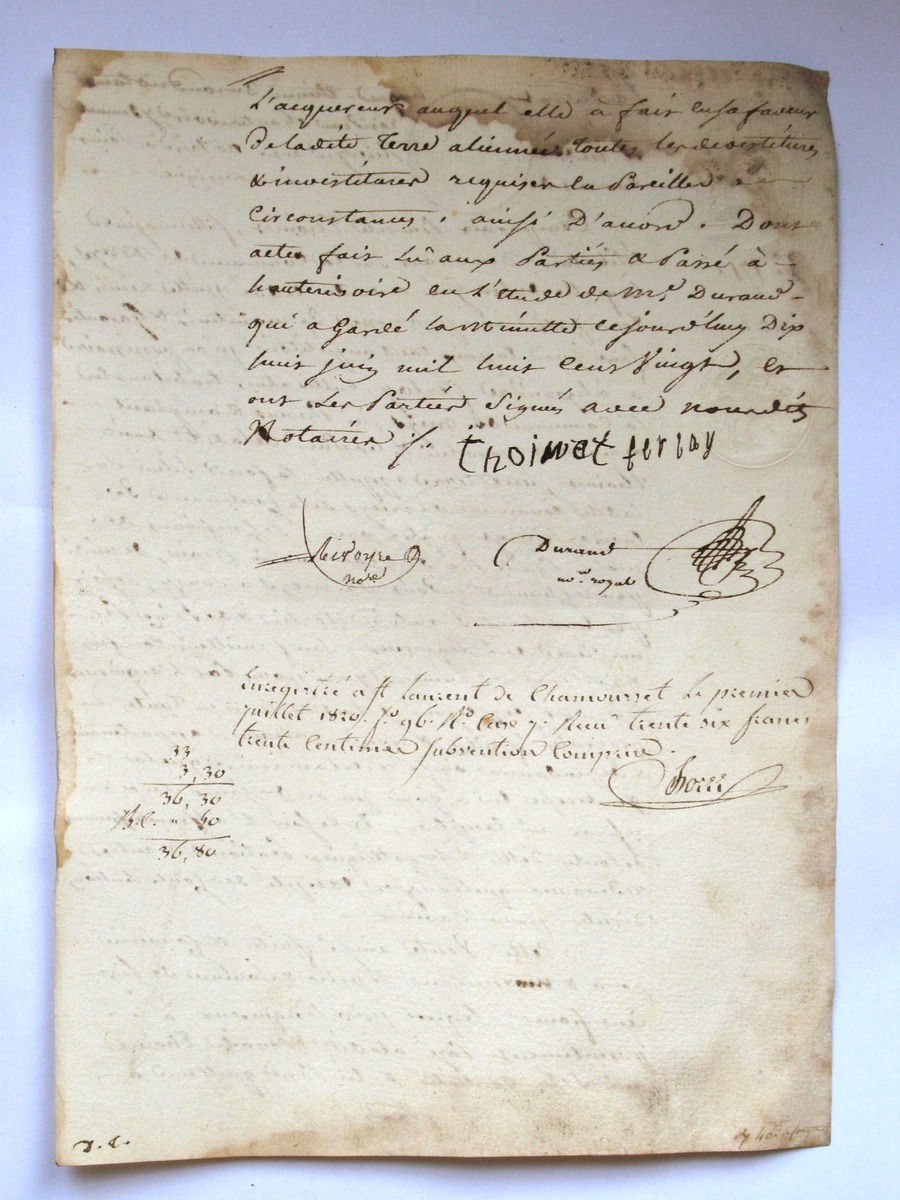 L'acquereur auquel elle à fait en sa faveur
De ladite Terre alienneé toutes les devestitures
& investitures requises en Pareilles
Circonstances, ainsi D'accord. Dont
acte fait Lû aux Parties & Passé à
hauterivoire en L'Etude de Me. Durand
qui a Gardé la Minutte cejourd'huy Dix
huit juin mil huit Cent Vingt, et
ont Les Parties Signés avec nousdits
Notaires /.
thoinet ferlay
Rivoyre
nore
Durand
no.re royal
Enregistré a St Laurent de Chamousset Le premier
juillet 1820. fo. 96. Vo. Case 7. Recu trente six francs
trente Centimes subvention Comprise.
33
3,30
36,30
" 50
36,80